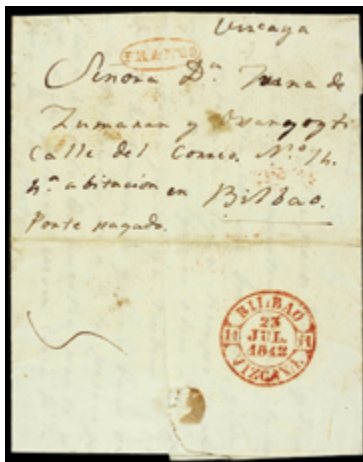 Vizcaya
FRANCO
Señora Dª Juana de
Calle del Correo. Nº 14.
4ª abitacion en Bilbao.
Porte pagado.
BILBAO
23
JUL.
1842
VIZCAYA